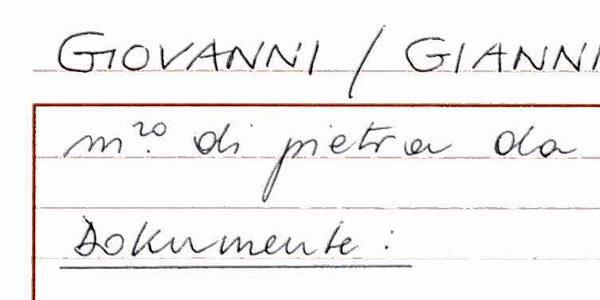 GIOVANNI / GIANNI
m.ro di pietra da
Dokumente: